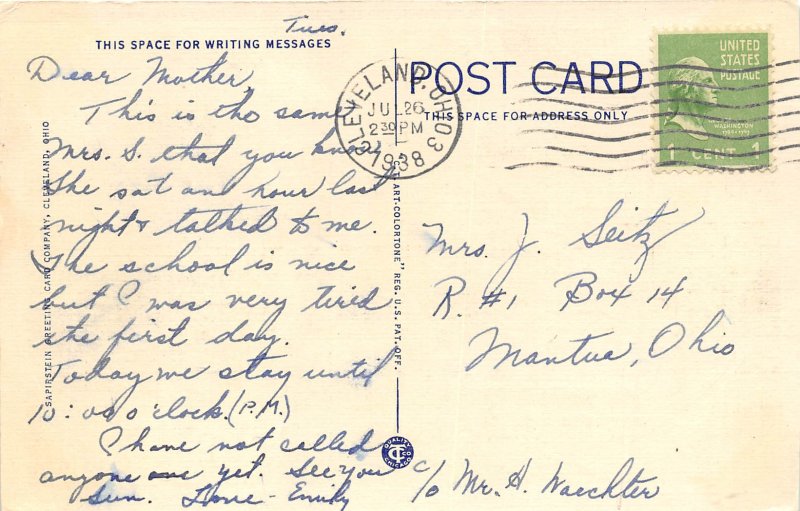 Tues.
THIS SPACE FOR WRITING MESSAGES
Dear Mother,
This is the same
Mrs. S. that you know
She sat an hour last
night & talked to me.
The school is nice
but I was very tired
the first day.
Today we stay until
10:00 o'clock. (P.M.)
I have not called
anyone one yet. See you
Sun. Love - Emily
SAPIRSTEIN GREETING CARD COMPANY, CLEVELAND, OHIO
"ART-COLORTONE" REG. U.S. PAT. OFF.
QUALITY
CT CO
CHICAGO
POST CARD
THIS SPACE FOR ADDRESS ONLY
CLEVELAND, OHIO 3
JUL 26
2 30 PM
1938
UNITED
STATES
POSTAGE
WASHINGTON
1 CENT 1
Mrs. J. Seitz
R. #1 Box 14
Mantua, Ohio
c/o Mr. H. Waechter